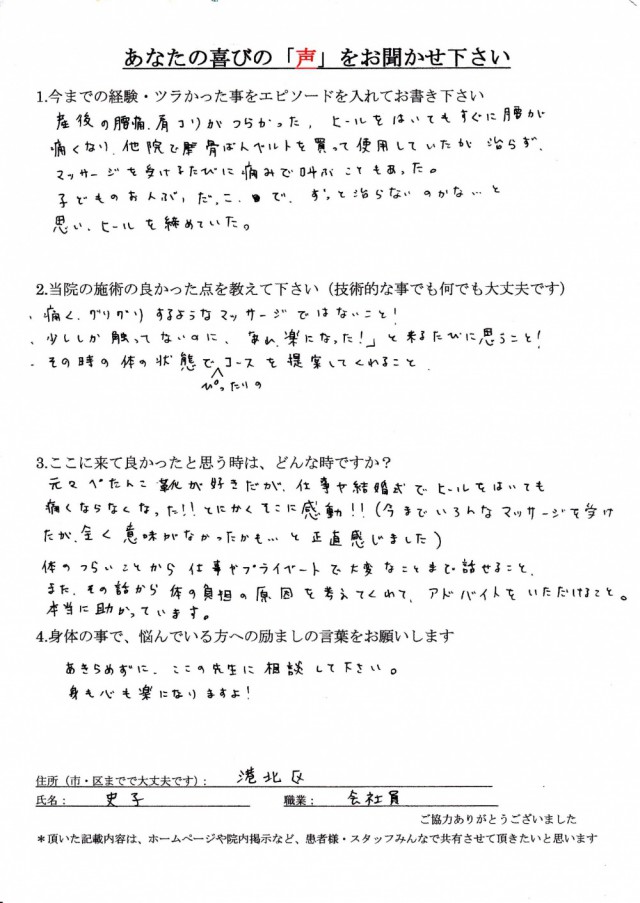 あなたの喜びの「声」をお聞かせ下さい
1.今までの経験・ツラかった事をエピソードを入れてお書き下さい
産後の腰痛、肩コリがつらかった。ヒールをはいてもすぐに腰が
痛くなり、他院で骨ばんベルトを買って使用していたが治らず、
マッサージを受けるたびに痛みで叫ぶこともあった。
子どものおんぶ、だっこで、ずっと治らないのかな…と
思い、ヒールを締めていた。
2.当院の施術の良かった点を教えて下さい（技術的な事でも何でも大丈夫です）
・痛く、グリグリするようなマッサージではないこと！
・少ししか触ってないのに、「あれ、楽になった！」と来るたびに思うこと！
・その時の体の状態でぴったりのコースを提案してくれること
3.ここに来て良かったと思う時は、どんな時ですか？
元々ぺたんこ靴が好きだが、仕事や結婚式でヒールをはいても
痛くならなくなった!!とにかくそこに感動!!(今までいろんなマッサージを受け
たが、全く意味がなかったかも…と正直感じました)
体のつらいことから仕事やプライベートで大変なことまで話せること、
また、その話から体の負担の原因を考えてくれて、アドバイスをいただけること。
本当に助かっています。
4.身体の事で、悩んでいる方への励ましの言葉をお願いします
あきらめずに、ここの先生に相談して下さい。
身も心も楽になりますよ!
住所（市・区までで大丈夫です）： 港北区
氏名： 史子 職業： 会社員
ご協力ありがとうございました
＊頂いた記載内容は、ホームページや院内掲示など、患者様・スタッフみんなで共有させて頂きたいと思います